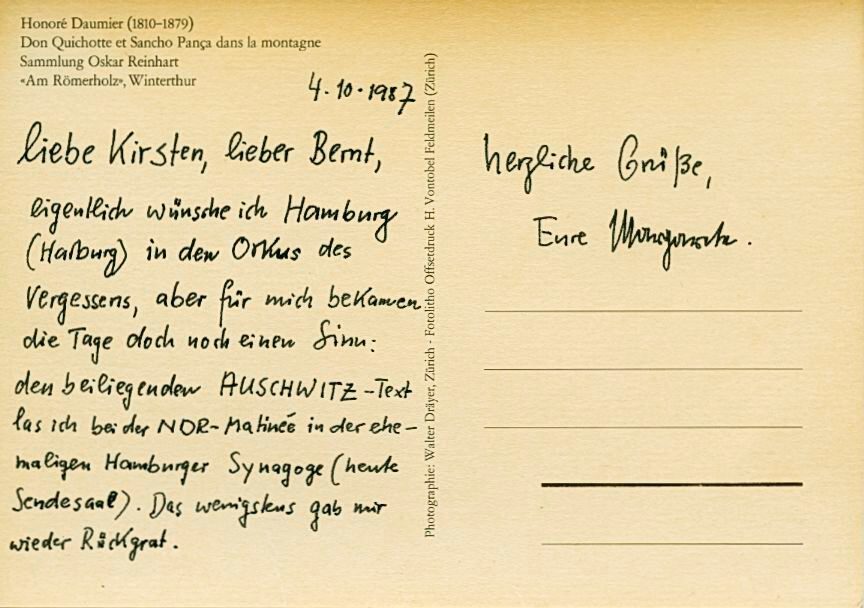 Honoré Daumier (1810–1879)
Don Quichotte et Sancho Pança dans la montagne
Sammlung Oskar Reinhart
«Am Römerholz», Winterthur
4.10.1987
liebe Kirsten, lieber Bernt,
eigentlich wünsche ich Hamburg
(Harburg) in den Orkus des
Vergessens, aber für mich bekamen
die Tage doch noch einen Sinn:
den beiliegenden AUSCHWITZ-Text
las ich bei der NDR-Matineé in der ehe-
maligen Hamburger Synagoge (heute
Sendesaal). Das wenigstens gab mir
wieder Rückgrat.
Photographie: Walter Dräyer, Zürich · Fotolitho Offsetdruck H. Vontobel Feldmeilen (Zürich)
herzliche Grüße,
Eure Margarete.